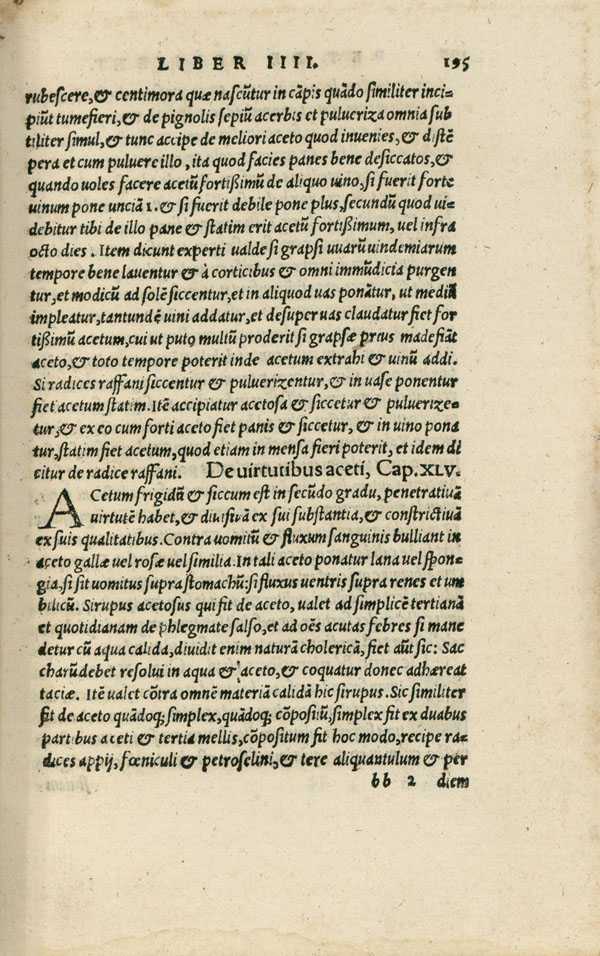 LIBER IIII. 195
rubescere, & centimora quæ nascūtur in cāpis quādo similiter inci-
piūt tumefieri, & de pignolis sepiū acerbis et pulueriza omnia sub
tiliter simul, & tunc accipe de meliori aceto quod inuenies, & distē
pera et cum puluere illo, ita quod facies panes bene desiccatos, &
quando uoles facere acetū fortißimū de aliquo uino, si fuerit forte
uinum pone unciā 1. & si fuerit debile pone plus, secundū quod ui-
debitur tibi de illo pane & statim erit acetū fortißimum, uel infra
octo dies. Item dicunt experti ualde si grapsi uuarū uindemiarum
tempore bene lauentur & à corticibus & omni immūdicia purgen
tur, et modicū ad solē siccentur, et in aliquod uas ponātur, ut mediū
impleatur, tantundē uini addatur, et desuper uas claudatur fiet for
tißimū acetum, cui ut puto multū proderit si grapsæ prius madefiāt
aceto, & toto tempore poterit inde acetum extrahi & uinū addi.
Si radices raffani siccentur & puluerizentur, & in uase ponentur
fiet acetum statim. Itē accipiatur acetosa & siccetur & puluerize-
tur, & ex eo cum forti aceto fiet panis & siccetur, & in uino pona
tur, statim fiet acetum, quod etiam in mensa fieri poterit, et idem di
citur de radice raffani. De uirtutibus aceti, Cap.XLV.
ACetum frigidū & siccum est in secūdo gradu, penetratiuā
uirtutē habet, & diuisiuā ex sui substantia, & constrictiuā
ex suis qualitatibus. Contra uomitū & fluxum sanguinis bulliant in
aceto gallæ uel rosæ uel similia. In tali aceto ponatur lana uel spon-
gia, si sit uomitus supra stomachū: si fluxus uentris supra renes et um
bilicū. Sirupus acetosus qui fit de aceto, ualet ad simplicē tertianā
et quotidianam de phlegmate salso, et ad oēs acutas febres si mane
detur cū aqua calida, diuidit enim naturā cholericā, fiet aūt sic: Sac
charū debet resolui in aqua & aceto, & coquatur donec adhæreat
taciæ. Itē ualet cōtra omnē materiā calidā hic sirupus. Sic similiter
fit de aceto quādoq; simplex, quādoq; cōpositū, simplex fit ex duabus
partibus aceti & tertia mellis, cōpositum fit hoc modo, recipe ra-
dices appij, fœniculi & petroselini, & tere aliquantulum & per
bb 2 diem